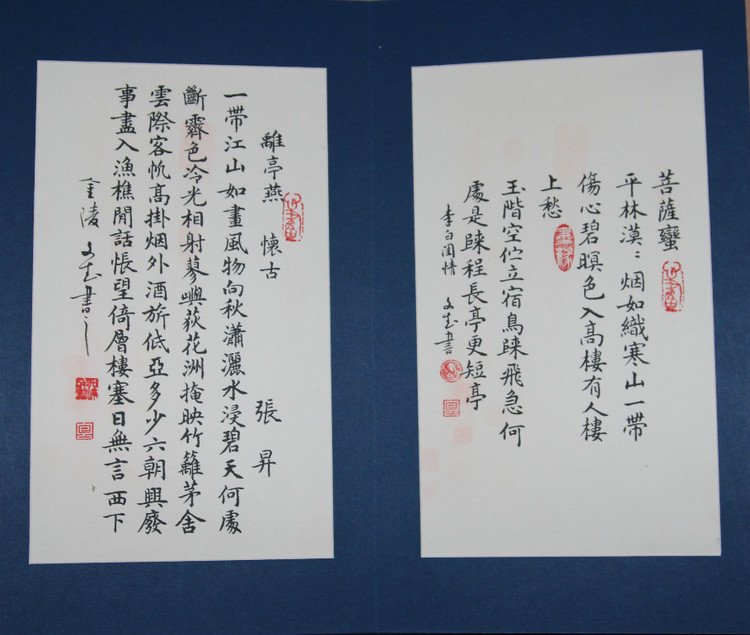 菩薩蠻
平林漠〻烟如織寒山一帶
傷心碧暝色入高樓有人樓
上愁
玉階空伫立宿鳥歸飛急何
處是歸程長亭更短亭
李白閨情 書
離亭燕 懷古 張昇
一帶江山如畫風物向秋瀟灑水浸碧天何處
斷霽色冷光相射蓼嶼荻花洲掩映竹籬茅舍
雲際客帆高掛烟外酒旂低亞多少六朝興廢
事盡入漁樵閒話悵望倚層樓塞日無言西下
金陵 書之